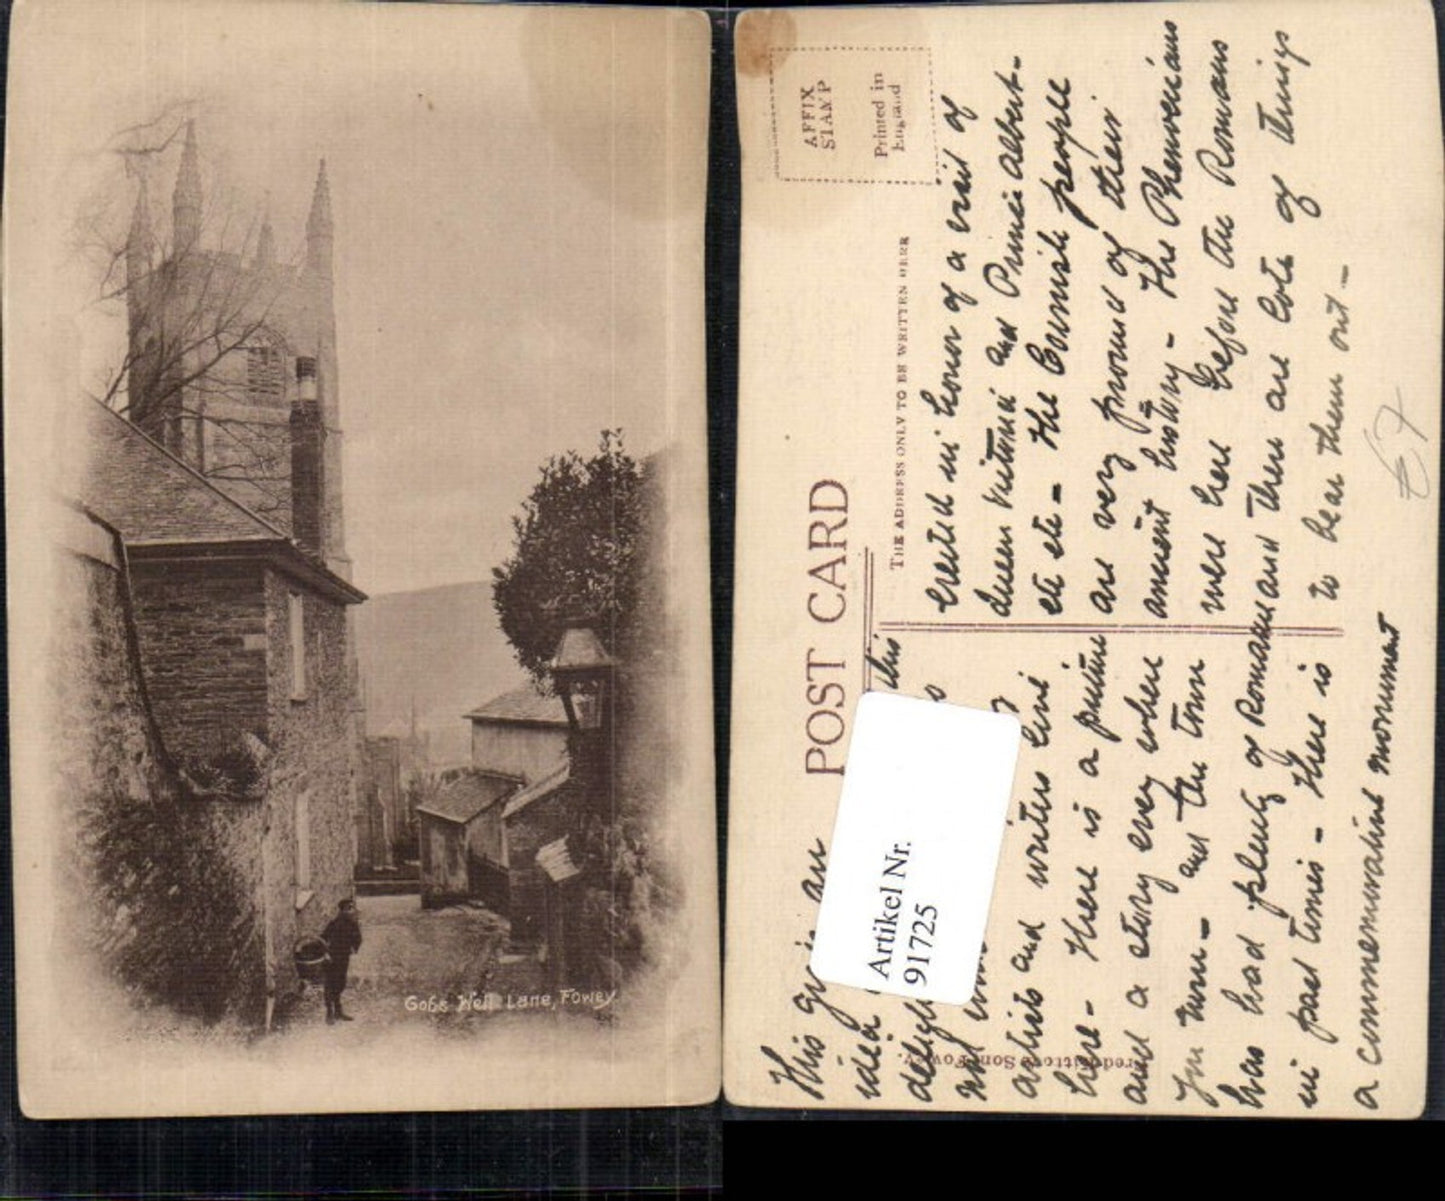 Gobs Well Lane, Fowey.
AFFIX
STAMP
Printed in
England
POST CARD
THE ADDRESS ONLY TO BE WRITTEN HERE
Artikel Nr.
91725
This gives an
idea this
artists and writers live
here - There is a picture
and a story every where
you turn - and the town
has had plenty of Romance
in past times - There is
a commemorative monument
erected in honor of a visit of
Queen Victoria and Prince Albert -
etc etc - The Cornish people
are very proud of their
ancient history - The Phenicians
were here before the Romans
and there are lots of things
to bear them out -
£7